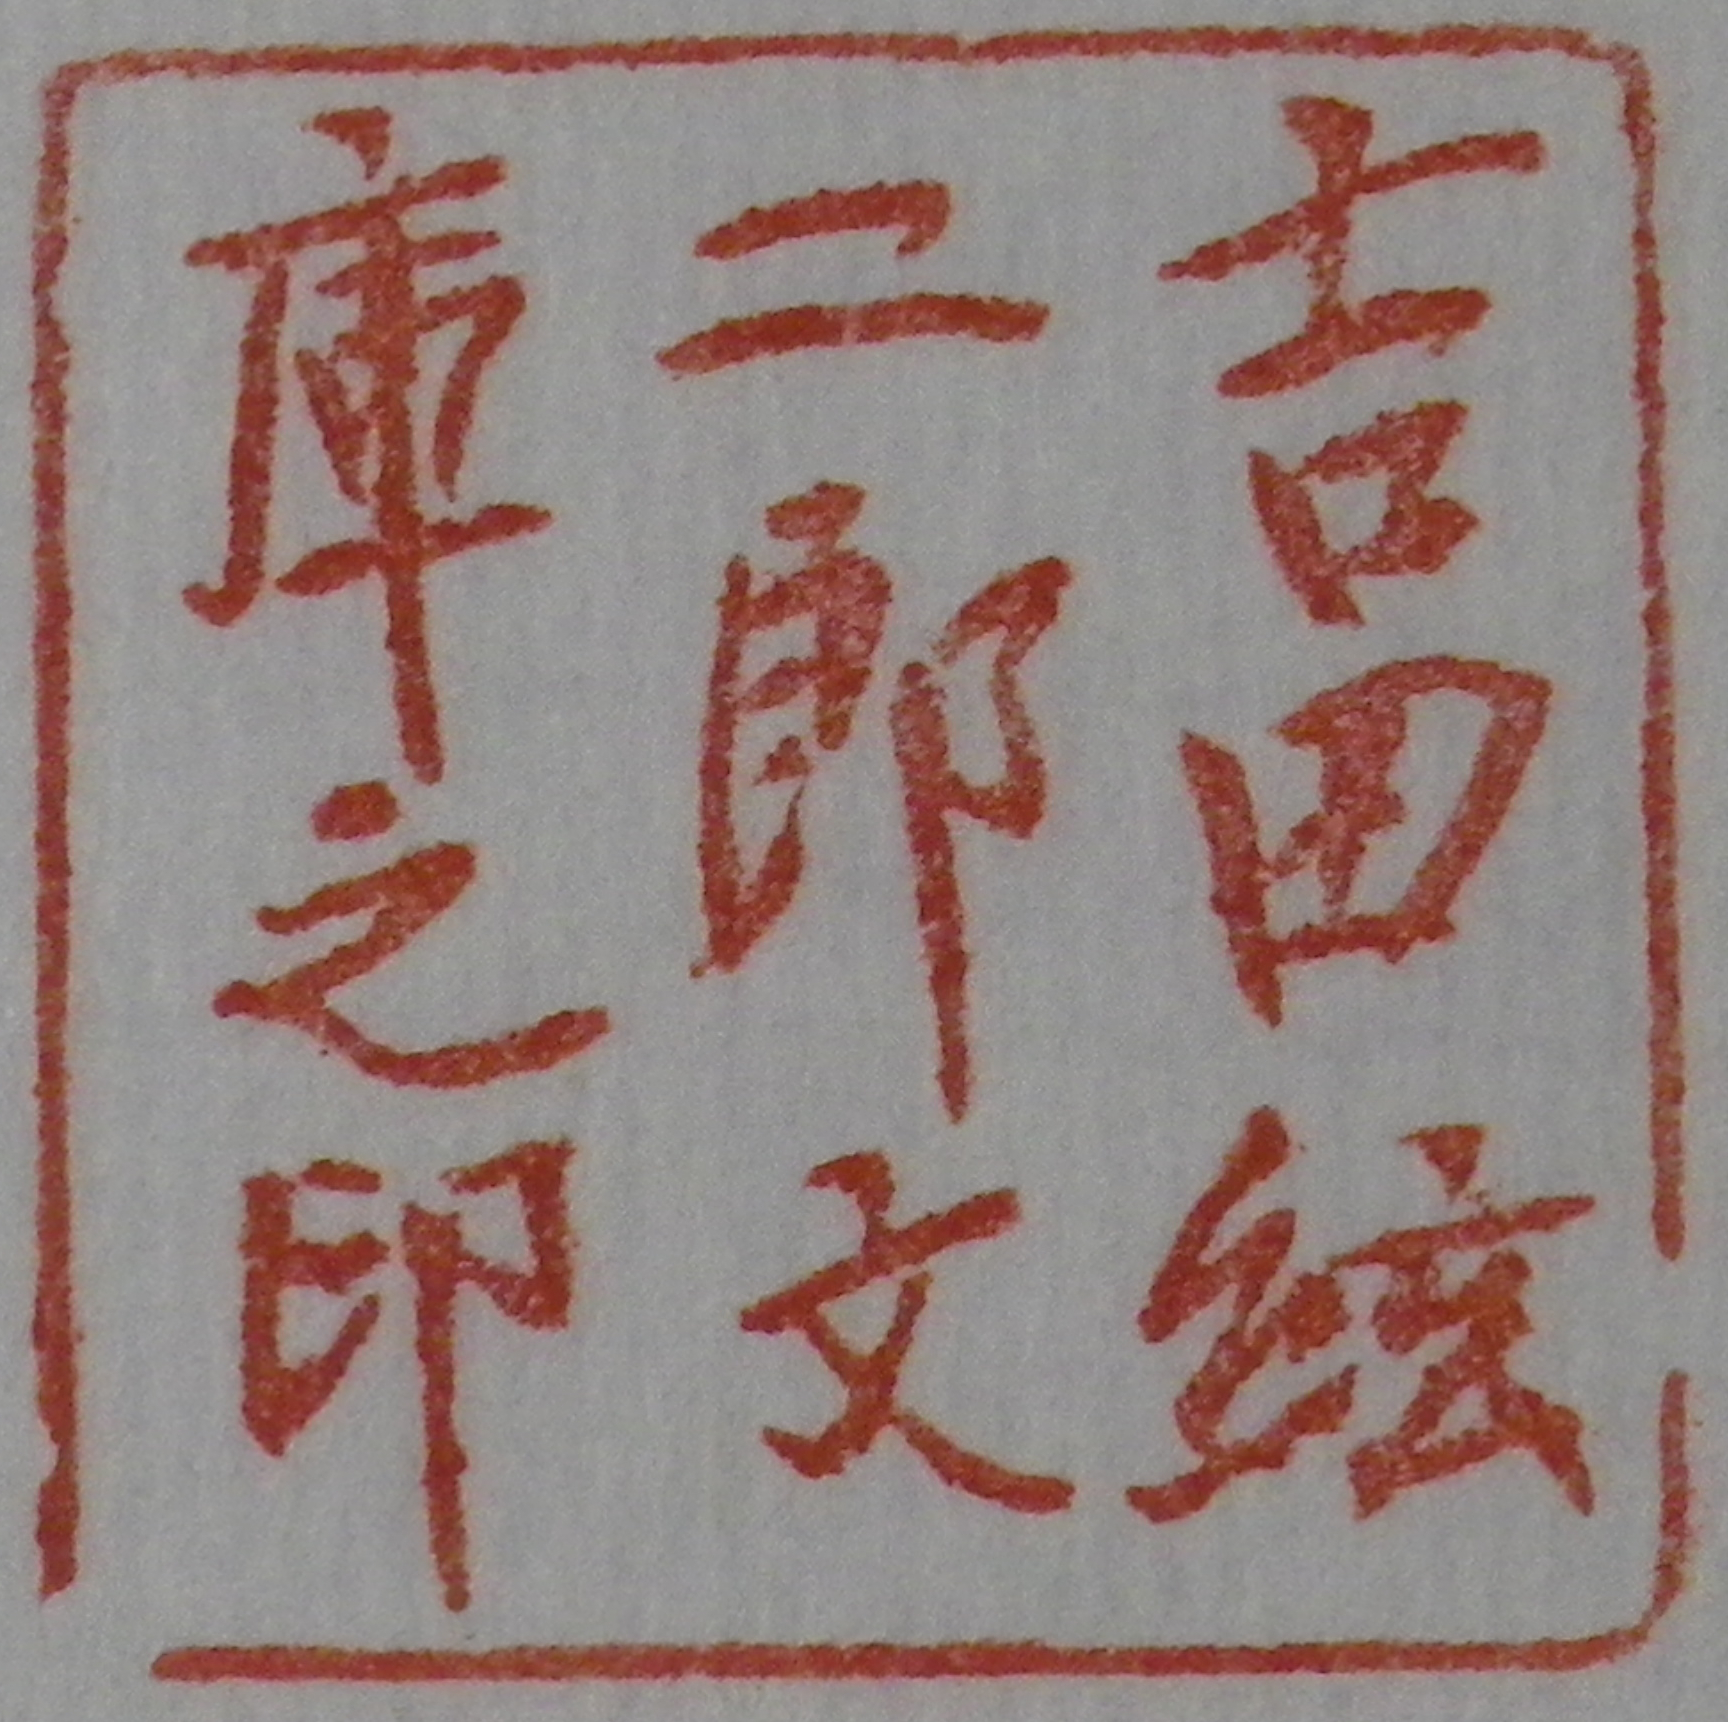 吉田絃
二郎文
庫之印